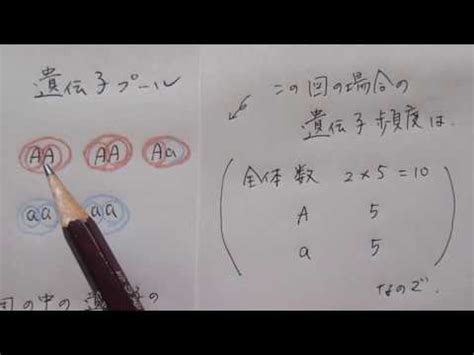 遺伝子プール
AA AA Aa
aa aa
この図の場合の
遺伝子頻度は.
全体数 2×5=10
A 5
a 5
なので.
の中の